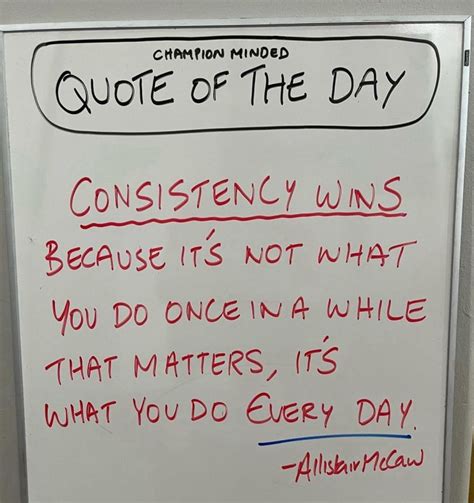 CHAMPION MINDED
QUOTE OF THE DAY
CONSISTENCY WINS
BECAUSE IT'S NOT WHAT
YOU DO ONCE IN A WHILE
THAT MATTERS, IT'S
WHAT YOU DO EVERY DAY.
-Allistair McCaw